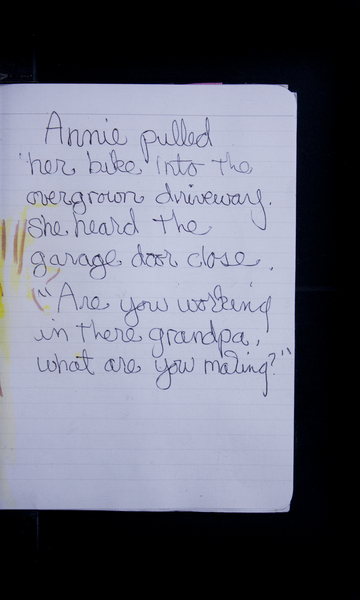 Annie pulled
her bike into the
overgrown driveway.
She heard the
garage door close.
"Are you working
in there grandpa,
what are you making?"